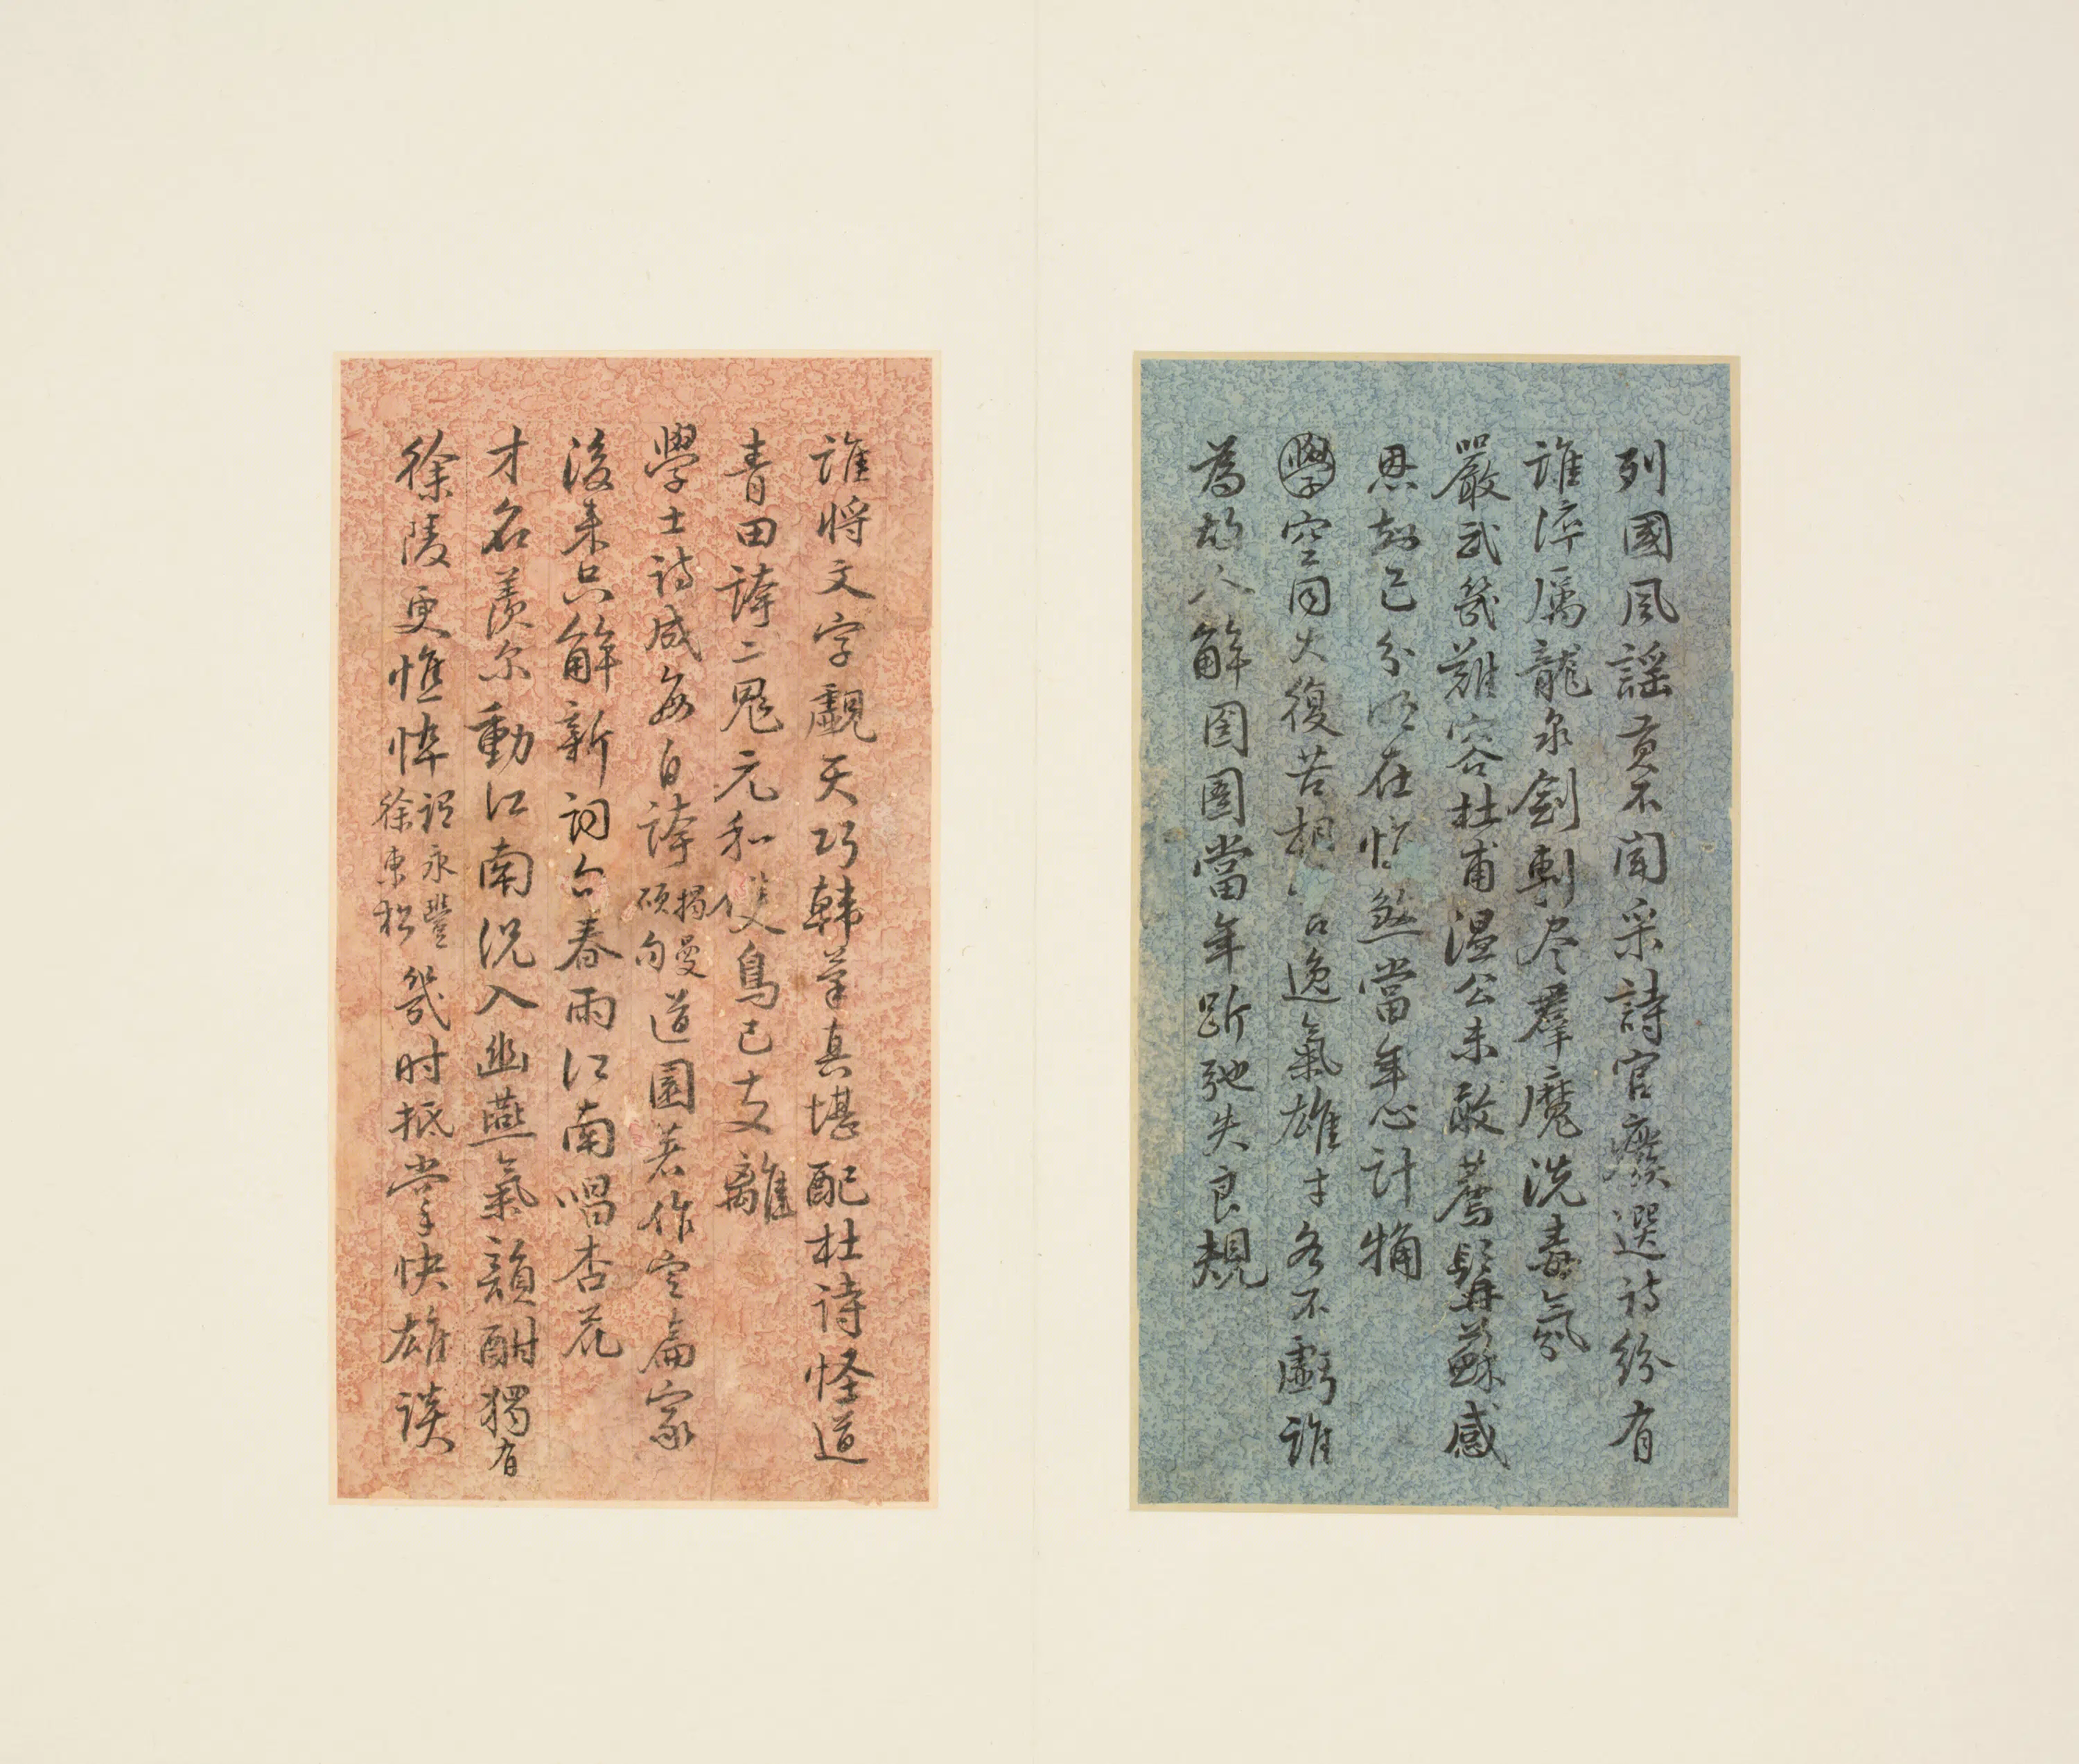 列國風謠夐不聞采詩官廢選詩紛有
誰淬厲龍泉劍剸尽羣魔洗毒氛
嚴武幾難容杜甫溫公未敢薦髯蘇感
恩知己分明在惆悵當年心計觕
學空同大復苦相 逸氣雄才各不虧誰
為故人解囹圄當年跅弛失良規
誰將文字覷天巧韓筆真堪配杜詩怪道
青田誇二鬼元和雙鳥已支離
學士詩成每自誇揭曼碩句道園著作定篇家
後来只解新詞句春雨江南唱杏花
才名羨尔動江南況入幽燕氣韻酣獨有
徐陵更憔悴謂永豐徐東松幾时抵掌快雄談